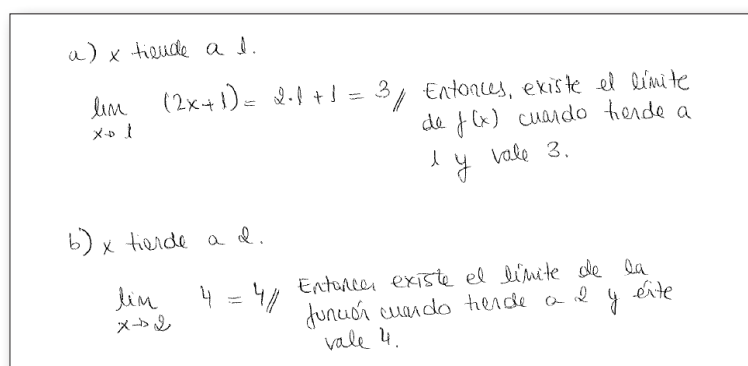 a) x tiende a 1.
lim (2x+1) = 2·1 + 1 = 3// Entonces, existe el límite
x→1 de f(x) cuando tiende a
1 y vale 3.
b) x tiende a 2.
lim 4 = 4// Entonces existe el límite de la
x→2 función cuando tiende a 2 y éste
vale 4.